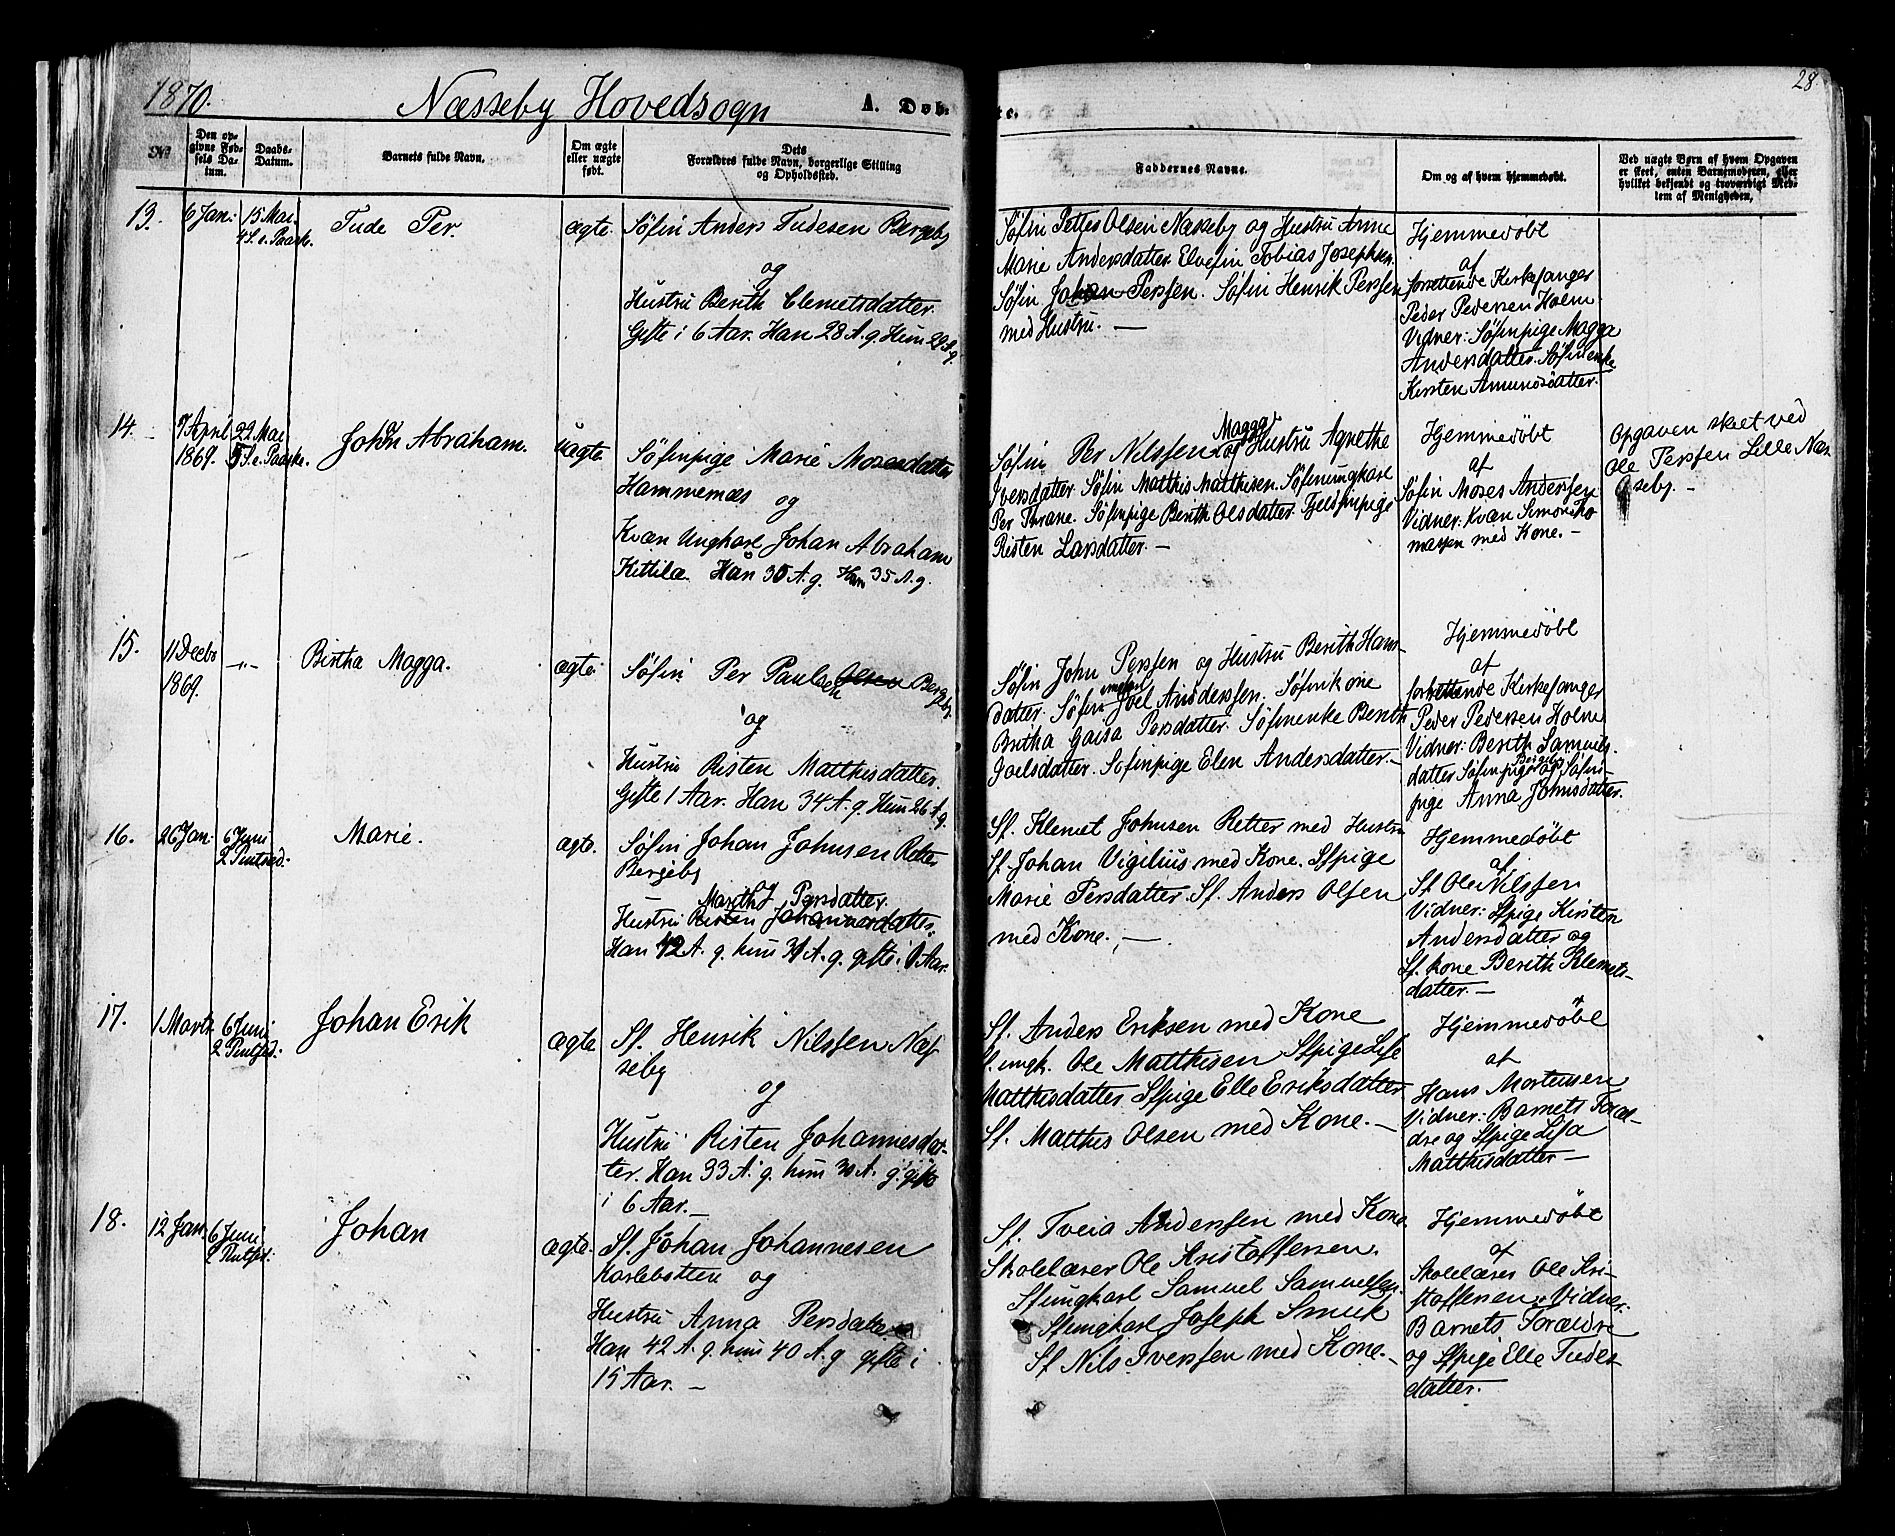 1870.
Næsseby Hovedsogn
A. Døb-
te.
28
No
Den op-
givne Fød-
sels Da-
tum.
Daabs-
Datum.
Barnets fulde Navn.
Om ægte
eller uægte
født.
Dets
Forældres fulde Navn, borgerlige Stilling
og Opholdssted.
Faddernes Navne.
Om og af hvem hjemmedøbt.
Ved uægte Børn af hvem Opgaven
er skeet, enten Barnemoderen, eller
hvilket bekjendt og troværdigt Med-
lem af Menigheden.
13.
6 Jan:
15 Mai.
4 S. e. Paaske.
Tude Per.
ægte.
Søfin Anders Tudesen Bergeby
og
Hustru Berith Clemetsdatter.
Gifte i 6 Aar. Han 28 A. g Hun 29 A. g.
Søfin Petter Olsen Næsseby og Hustru Anne
Marie Andersdatter. Elvefin Tobias Josephsen.
Søfin Johan Perssen. Søfin Henrik Perssen
med Hustru. —
Hjemmedøbt
af
forrettende Kirkesanger
Peder Pedersen Holm
Vidner: Søfinpige Magga
Andersdatter. Søfinenke
Kirsten Amundsdatter.
14.
7 April
1869.
22 Mai
5 S. e. Paaske.
Johan Abraham.
uægte.
Søfinpige Marie Mosesdatter
Hammernæs og
Kvæn Ungkarl Johan Abraham
Kittila. Han 30 A. g. Hun 35 A. g.
Søfin Per Nilssen og Hustru Magga Agnethe
Iversdatter. Søfin Matthis Matthisen. Søfinungkarl
Per Thrane. Søfinpige Berith Olsdatter. Fjeldfinpige
Risten Larsdatter. —
Hjemmedøbt
af
Søfin Moses Anderssen
Vidner: Kvæn Simon Tho
massen med Kone. —
Opgaven skeet ved
Ole Perssen Lille Næs
seby. —
15.
11 Decbr
1869.
—"—
Birtha Magga.
ægte.
Søfin Per Paulsen Olsen Bergeby
og
Hustru Risten Matthisdatter.
Gifte 1 Aar. Han 34 A. g Hun 26 A. g.
Søfin John Perssen og Hustru Berith Hans-
datter. Søfin Joel Anderssen. Søfinkone
Britha Gaisa Persdatter. Søfinenke Berith
Joelsdatter. Søfinpige Elen Andersdatter. —
Hjemmedøbt
af
forrettende Kirkesanger
Peder Pedersen Holm
Vidner: Berith Samuels-
datter Søfinpige Bergeby og Søfin-
pige Anna Johnsdatter.
16.
26 Jan.
6 Juni
2 Pintsed:
Marie.
ægte.
Søfin Johan Johnsen Retter
Bergeby
Marith J Persdatter
Hustru Risten Johannesdatter.
Han 42 A. g. hun 31 A. g. gifte i 1 Aar.
Sf. Klemet Johnsen Retter med Hustru
Sf. Johan Vigilius med Kone. Sfpige
Marie Persdatter. Sf. Anders Olsen
med Kone. —
Hjemmedøbt
af
Sf Ole Nilssen
Vidner: Sfpige Kirsten
Andersdatter og
Sf. kone Berith Klemets-
datter. —
17.
1 Marts.
6 Juni
2 Pintsed:
Johan Erik
ægte
Sf. Henrik Nilssen Næs
seby
og
Hustru Risten Johannesdat-
ter. Han 33 A. g. hun 30 A. g. gifte
i 6 Aar. —
Sf. Anders Eriksen med Kone
Sf. ungk. Ole Matthisen Sfpige Lisa
Matthisdatter Sfpige Elle Eriksdatter
Sf. Matthis Olsen med Kone. —
Hjemmedøbt
af
Hans Mortensen
Vidner: Barnets Foræl-
dre og Sfpige Lisa
Matthisdatter —
18.
12 Jan.
6 Juni
2 Pintsed:
Johan
ægte.
Sf. Johan Johannesen
Karlebotten og
Hustru Anna Persdatter
Han 42 A. g. hun 40 A. g gifte i
15 Aar. —
Sf. Tveia Anderssen med Kone.
Skolelærer Ole Kristoffersen.
Sfungkarl Samuel Samuelsen.
Sfungkarl Joseph Smuk
Sf Nils Iverssen med Kone. —
Hjemmedøbt
af
Skolelærer Ole Kri-
stoffersen. Vidner:
Barnets Forældre
og Sfpige Elle Tudes-
datter. —